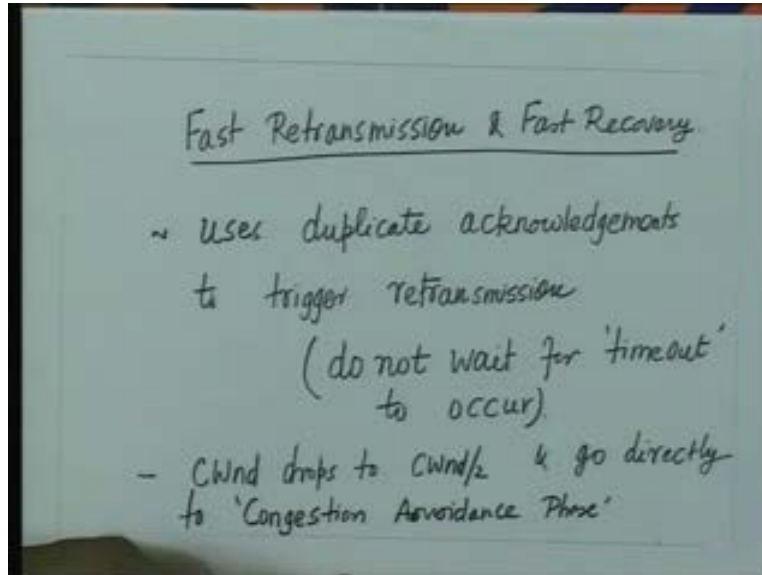 Fast Retransmission & Fast Recovery.
~ uses duplicate acknowledgements
to trigger retransmission
(do not wait for 'timeout'
to occur).
- CWnd drops to CWnd/2 & go directly
to 'Congestion Aovoidance Phase'